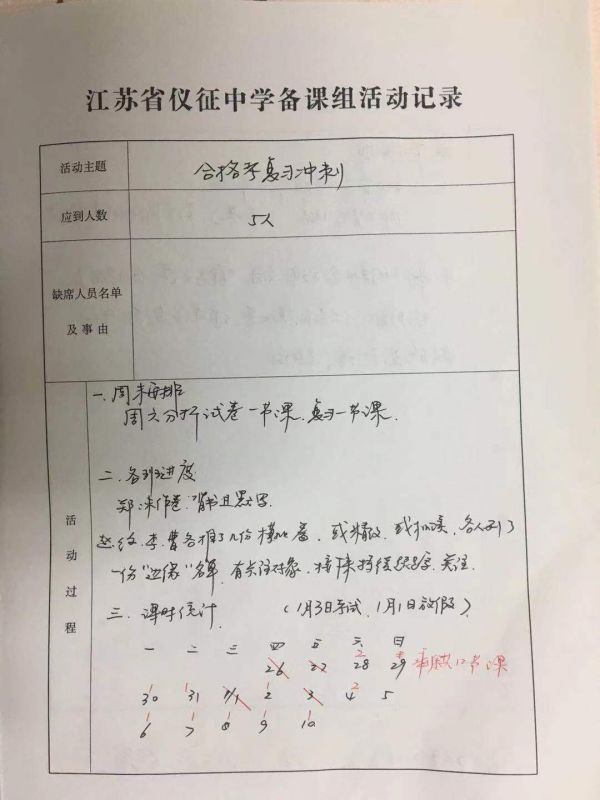 江苏省仪征中学备课组活动记录
活动主题
合格考复习冲刺
应到人数
5人
缺席人员名单
及事由
活动过程
一、周末安排
周六分析试卷一节课、复习一节课.
二、各班进度
作卷、背书且默写
李、曹各推了几份模拟卷、或精改、或扣读、各人列了
一份“边缘”名单、有关注对象、接下来持续跟踪、关注.
三、课时统计 （1月3日考试，1月1日放假）
一 二 三 四 五 六 日
26 27 28 29 剩12节课
30 31 1/1 2 3 4 5
6 7 8 9 10